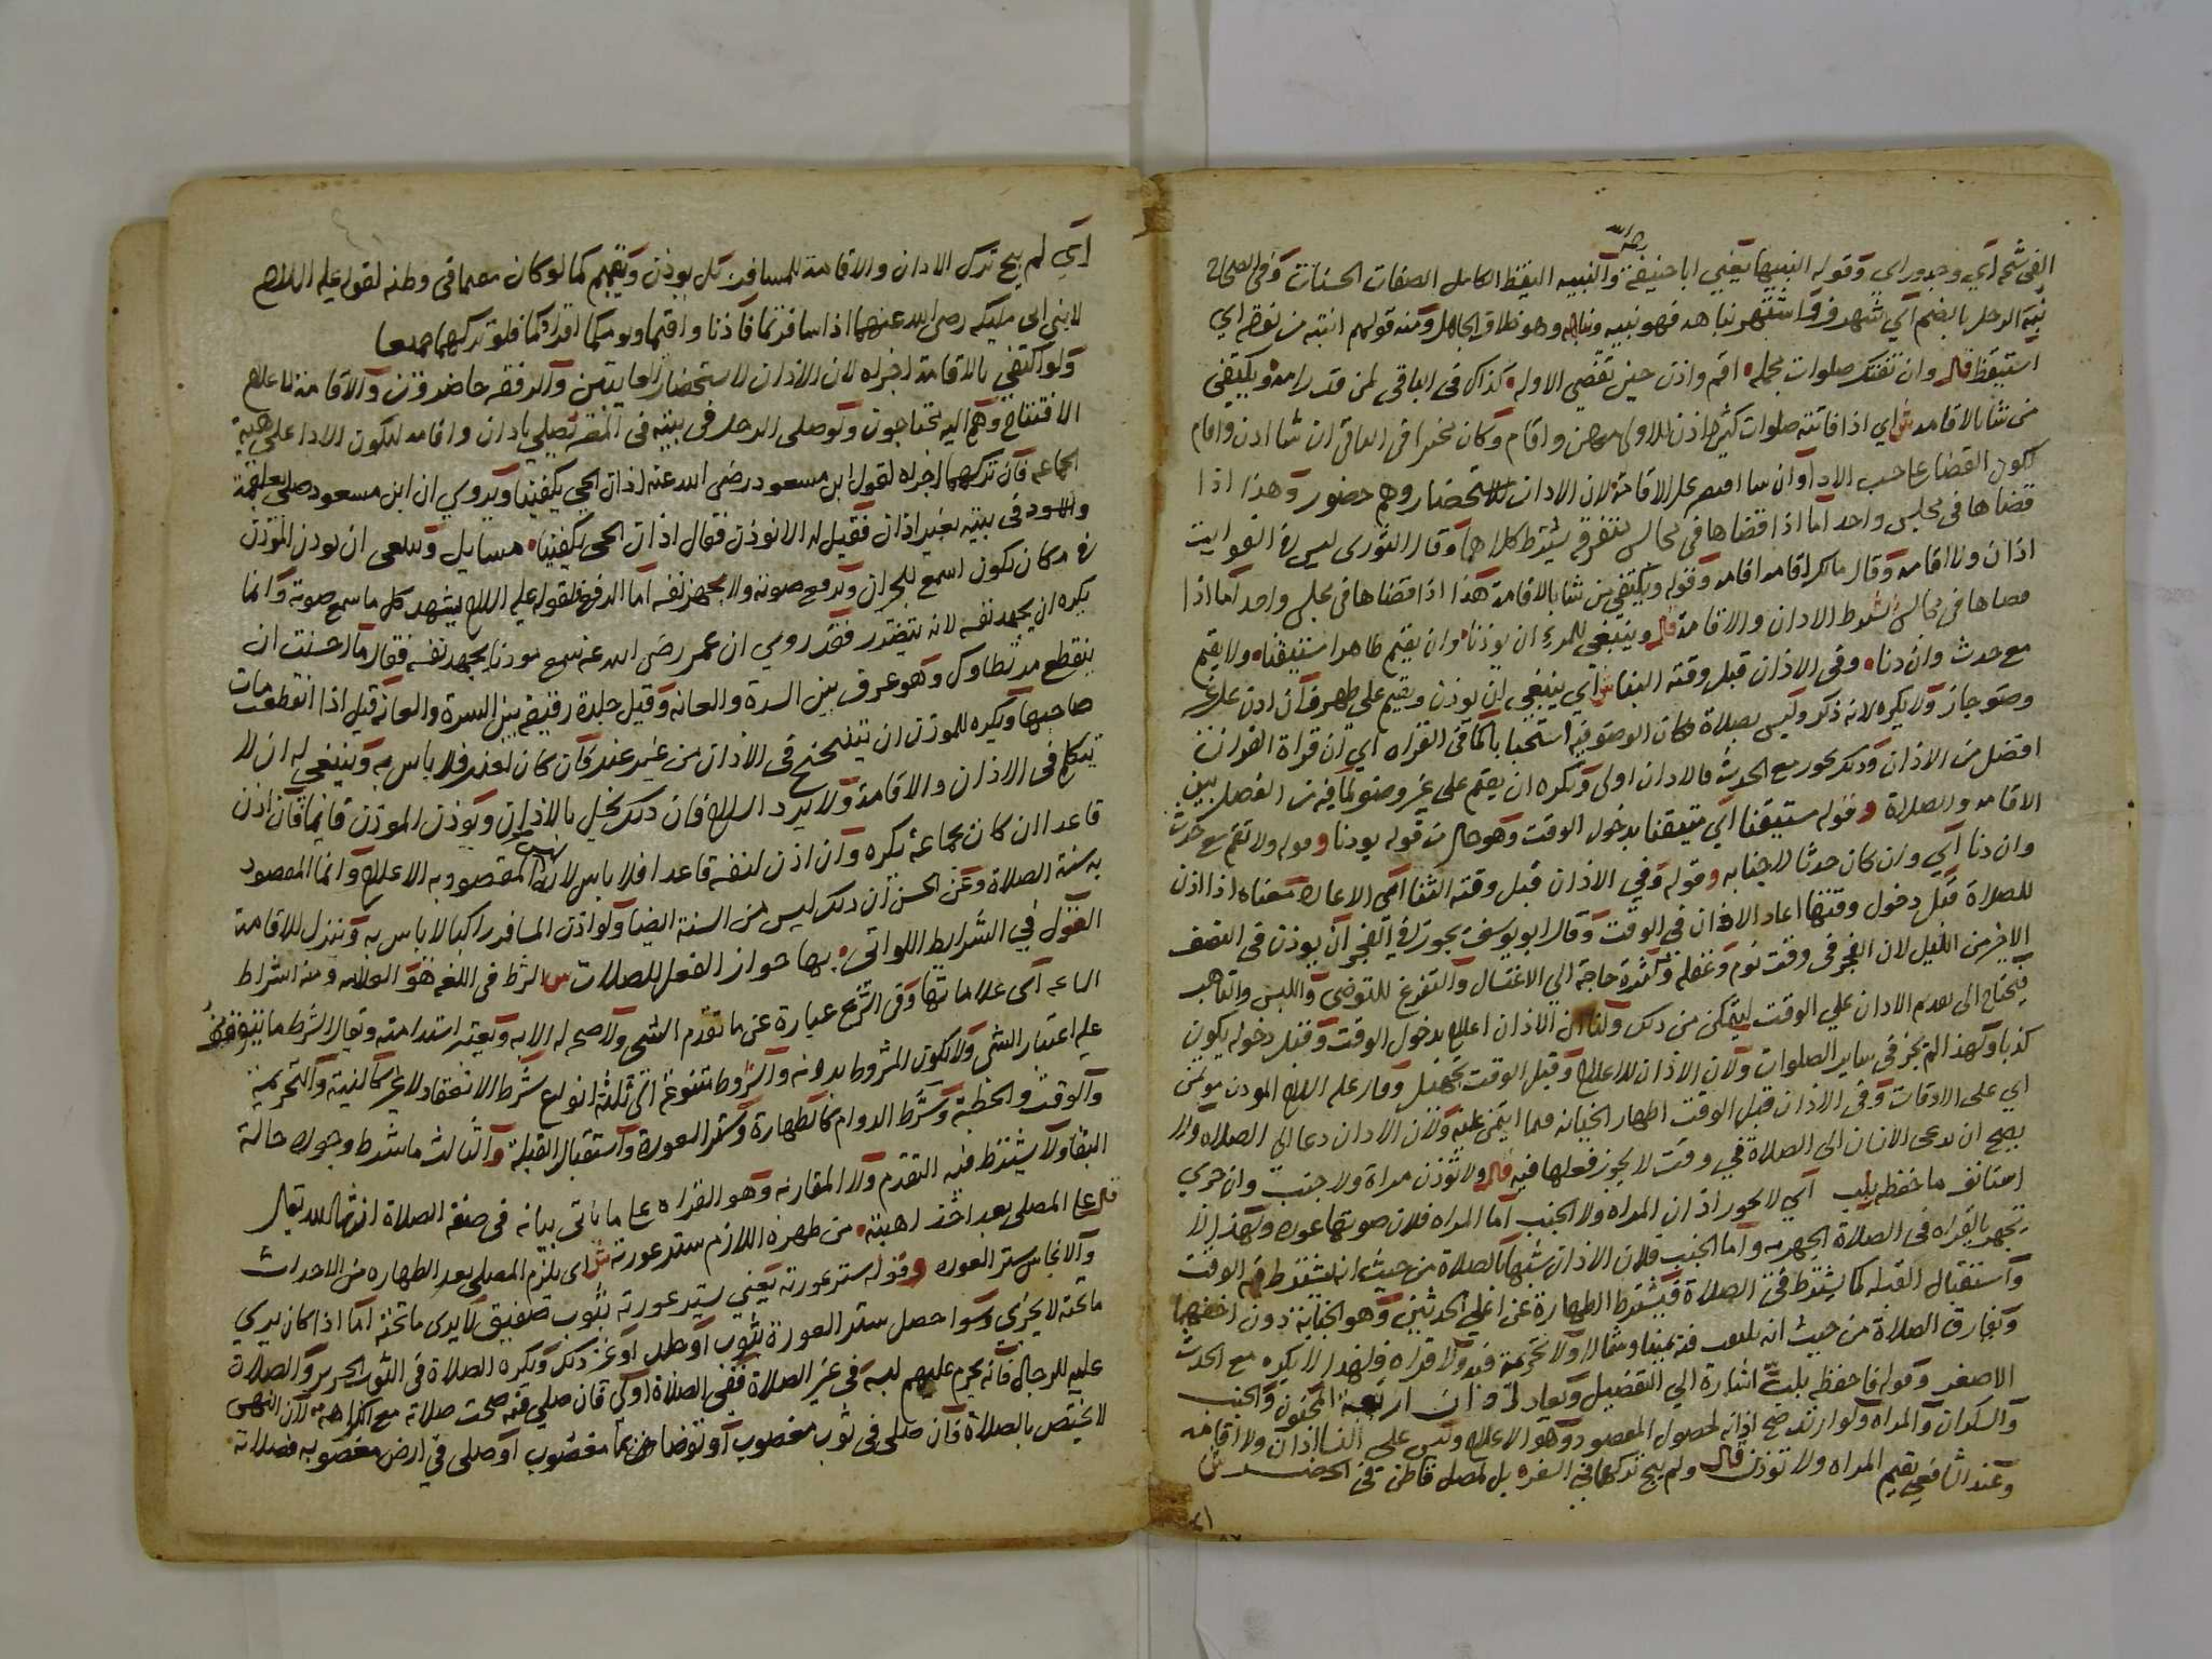 الفى شمه اي وجد وراى وقوله النبيها يعني ابا حنيفة رحمه الله والنبيه اليقظ الكامل الصفات الحسنات وفي الصحاح
نبه الرجل بالضم اي شهر فهو نبيه ونابه وهو خلاف الخامل ومنه قولهم انتبه من نومه اي
استيقظ قال وان تفتك صلوات جمله اقم واذن حين تقضي الاوله كذاك في الباقي لمن قد رامه ويكتفي
من شا بالاقامه ش اي اذا فاتته صلوات كثيرة اذن للاولى منهن واقام وكان مخيرا في الباقي ان شا اذن واقام
ليكون القضا على حسب الادا وان شا اقتصر على الاقامة لان الاذان للاستحضار وهم حضور وهذا اذا
قضاها في مجلس واحد اما اذا قضاها في مجالس متفرقه يشترط كلاهما وقال الثوري ليس في الفوايت
اذان ولا اقامه وقال مالك اقامه اقامه وقوله ويكتفي من شا بالاقامة هذا اذا قضاها في مجلس واحد اما اذا
قضاها في مجالس تشترط الاذان والاقامة قال وينبغي للمرء ان يوذنا وان يقيم طاهرا مستيقنا ولا يقيم
مع حدث وان دنا وفي الاذان قبل وقته الثنا ش اي ينبغي ان يوذن ويقيم على طهر فان اذن على غير
وضو جاز ولا يكره لانه ذكر وليس بصلاة فكان الوضو فيه استحبابا كما في القراه اي ان قراة القران
افضل من الاذان وذلك يجوز مع الحدث فالاذان اولى ويكره ان يقيم على غير وضو لما فيه من الفصل بين
الاقامه والصلاة وقوله مستيقنا اي متيقنا بدخول الوقت وهو حال من قوله يوذنا وقوله ولا يقيم مع حدث
وان دنا اي وان كان حدثا لا جنابه وقوله وفي الاذان قبل وقته الثنا اي الاعادة معناه اذا اذن
للصلاة قبل دخول وقتها اعاد الاذان في الوقت وقال ابو يوسف يجوز في الفجر ان يوذن في النصف
الاخير من الليل لان الفجر في وقت نوم وغفله وكثرة حاجة الي الاغتسال والتفرغ للتوضي واللبس والتاهب
فيحتاج الى تقديم الاذان علي الوقت ليتمكن من ذلك ولنا ان الاذان اعلام بدخول الوقت وقبل دخوله يكون
كذبا ولهذا لم يجز في ساير الصلوات ولان الاذان للاعلام وقبل الوقت تجهيل وقال عليه السلام الموذن موتمن
اي على الاوقات وفي الاذان قبل الوقت اظهار الخيانه فيما ايتمن عليه ولان الاذان دعا الي الصلاه ولا
يصح ان يدعى الانسان الى الصلاة في وقت لا يجوز فعلها فيه قال ولا توذن مراة ولا جنب وان جري
استانف ما خفظه بلب اي لا يجوز اذان المراه ولا الجنب اما المراه فلان صوتها عوره ولهذا لا
تجهر بالقراه في الصلاة الجهريه واما الجنب فلان الاذان شبيها بالصلاة من حيث انه يشترط فيه الوقت
واستقبال القبله كما يشترط في الصلاة فيشترط الطهارة عن اغلظ الحدثين وهو الجنابة دون اخفهما
ويفارق الصلاة من حيث انه يلتفت فيه يمينا وشمالا ولا تحريمة فيه ولا قراه فلهذا لا يكره مع الحدث
الاصغر وقوله فاحفظه بلب اشارة الي التفصيل ويعاد اذان اربعة المجنون والجنب
والسكران والمراه ولو ارتد صح اذانه لحصول المقصود وهو الاعلام وليس على النسا اذان ولا اقامه
وعند الشافعي يقيم المراه ولا توذن قال ولم يبح تركهما في السفره بل لمصل قاطن في الحضر ش
اي
اي لم يبح ترك الاذان والاقامة للمسافر بل يوذن ويقيم كما لو كان مقيما في وطنه لقوله عليه السلام
لابني ابي مليكه رضي الله عنهما اذا سافرتما فاذنا واقيما وليؤمكما اقراكما فلو تركهما جميعا
ولو اكتفي بالاقامة اجزاه لان الاذان لاستحضار الغايبين والرفقه حاضرون والاقامة لاعلام
الافتتاح وهم اليه محتاجون ولو صلى الرجل في بيته في المصر يصلي باذان واقامه ليكون الادا على هيئة
الجماعه فان تركهما اجزاه لقول ابن مسعود رضي الله عنه اذان الحي يكفينا ويروي ان ابن مسعود صلى بعلقمة
والاسود في بيته بغير اذان فقيل له الا توذن فقال اذان الحي يكفينا مسايل وينبغي ان يوذن الموذن
في مكان يكون اسمع للجيران ويرفع صوته ولا يجهد نفسه اما الرفع فلقوله عليه السلام يشهد كل ما سمع صوته وانما
يكره ان يجهد نفسه لانه يتضرر فقد روي ان عمر رضي الله عنه سمع موذنا يجهد نفسه فقال اما خشيت ان
ينقطع مريطاوك وهو عرق بين السرة والعانه وقيل جلدة رقيقه بين السرة والعانه قيل اذا انقطعت مات
صاحبها ويكره للموذن ان يتنحنح في الاذان من غير عذر فان كان لعذر فلا باس به وينبغي له ان لا
يتكلم في الاذان والاقامة ولا يرد السلام فان ذلك يخل بالاذان ويوذن الموذن قايما فان اذن
قاعدا ان كان لجماعة يكره وان اذن لنفسه قاعدا فلا باس لانه ليس المقصود به الاعلام وانما المقصود
به سنة الصلاة وعن الحسن ان ذلك ليس من السنة ايضا ولو اذن المسافر راكبا لا باس به وينزل للاقامة
القول في الشرايط اللواتي بها جواز الفعل للصلات ش الشرط في اللغه هو العلامه ومنه اشراط
الساعه اي علاماتها وفي الشرع عبارة عن ما تقدم الشي ولا صحه له الا به ويعتبر استدامته ويقال الشرط ما يتوقف
عليه اعتبار الشي ولا يكون المشروط بدونه والشروط متنوعة الى ثلثة انواع شرط الانعقاد لا غير كالنية والتحريمة
والوقت والخطبة وشرط الدوام كالطهارة وستر العورة واستقبال القبلة والثالث ما شرط وجوده حالة
البقا ولا يشترط فيه التقدم ولا المقارنه وهو القراه على ما ياتي بيانه في صفة الصلاة ان شا الله تعالى
قال على المصلي بعد اخذ اهبته من طهره اللازم ستر عورته ش اي يلزم المصلي بعد الطهاره من الاحداث
والانجاس ستر العوره وقوله ستر عورته يعني ستر عورته بثوب صفيق لا يرى ما تحته اما اذا كان يري
ما تحته لا يجزي وسوا حصل ستر العورة بثوب او جلد او غير ذلك ويكره الصلاة في الثوب الحرير والصلاة
عليه للرجال فانه يحرم عليهم لبسه في غير الصلاة ففي الصلاة اولى فان صلى فيه صحت صلاته مع الكراهه لان النهي
لا يختص بالصلاة فان صلى في ثوب مغصوب او توضا من بما مغضوب او صلى في ارض مغصوبه فصلاته